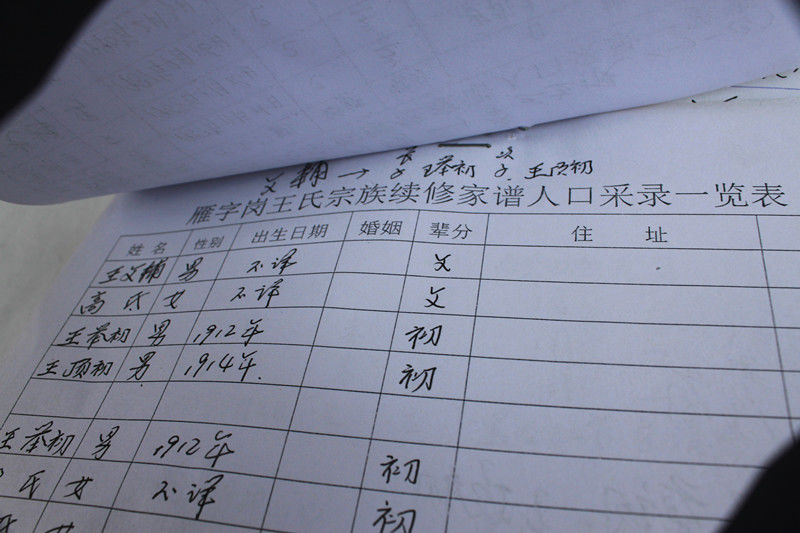 长 次
文辅→子 王举初 子 王顶初
雁字岗王氏宗族续修家谱人口采录一览表
姓名 性别 出生日期 婚姻 辈分 住 址
王文辅 男 不译 文
高氏 女 不译 文
王举初 男 1912年 初
王顶初 男 1914年 初
王举初 男 1912年 初
氏 女 不译 初
氏 女